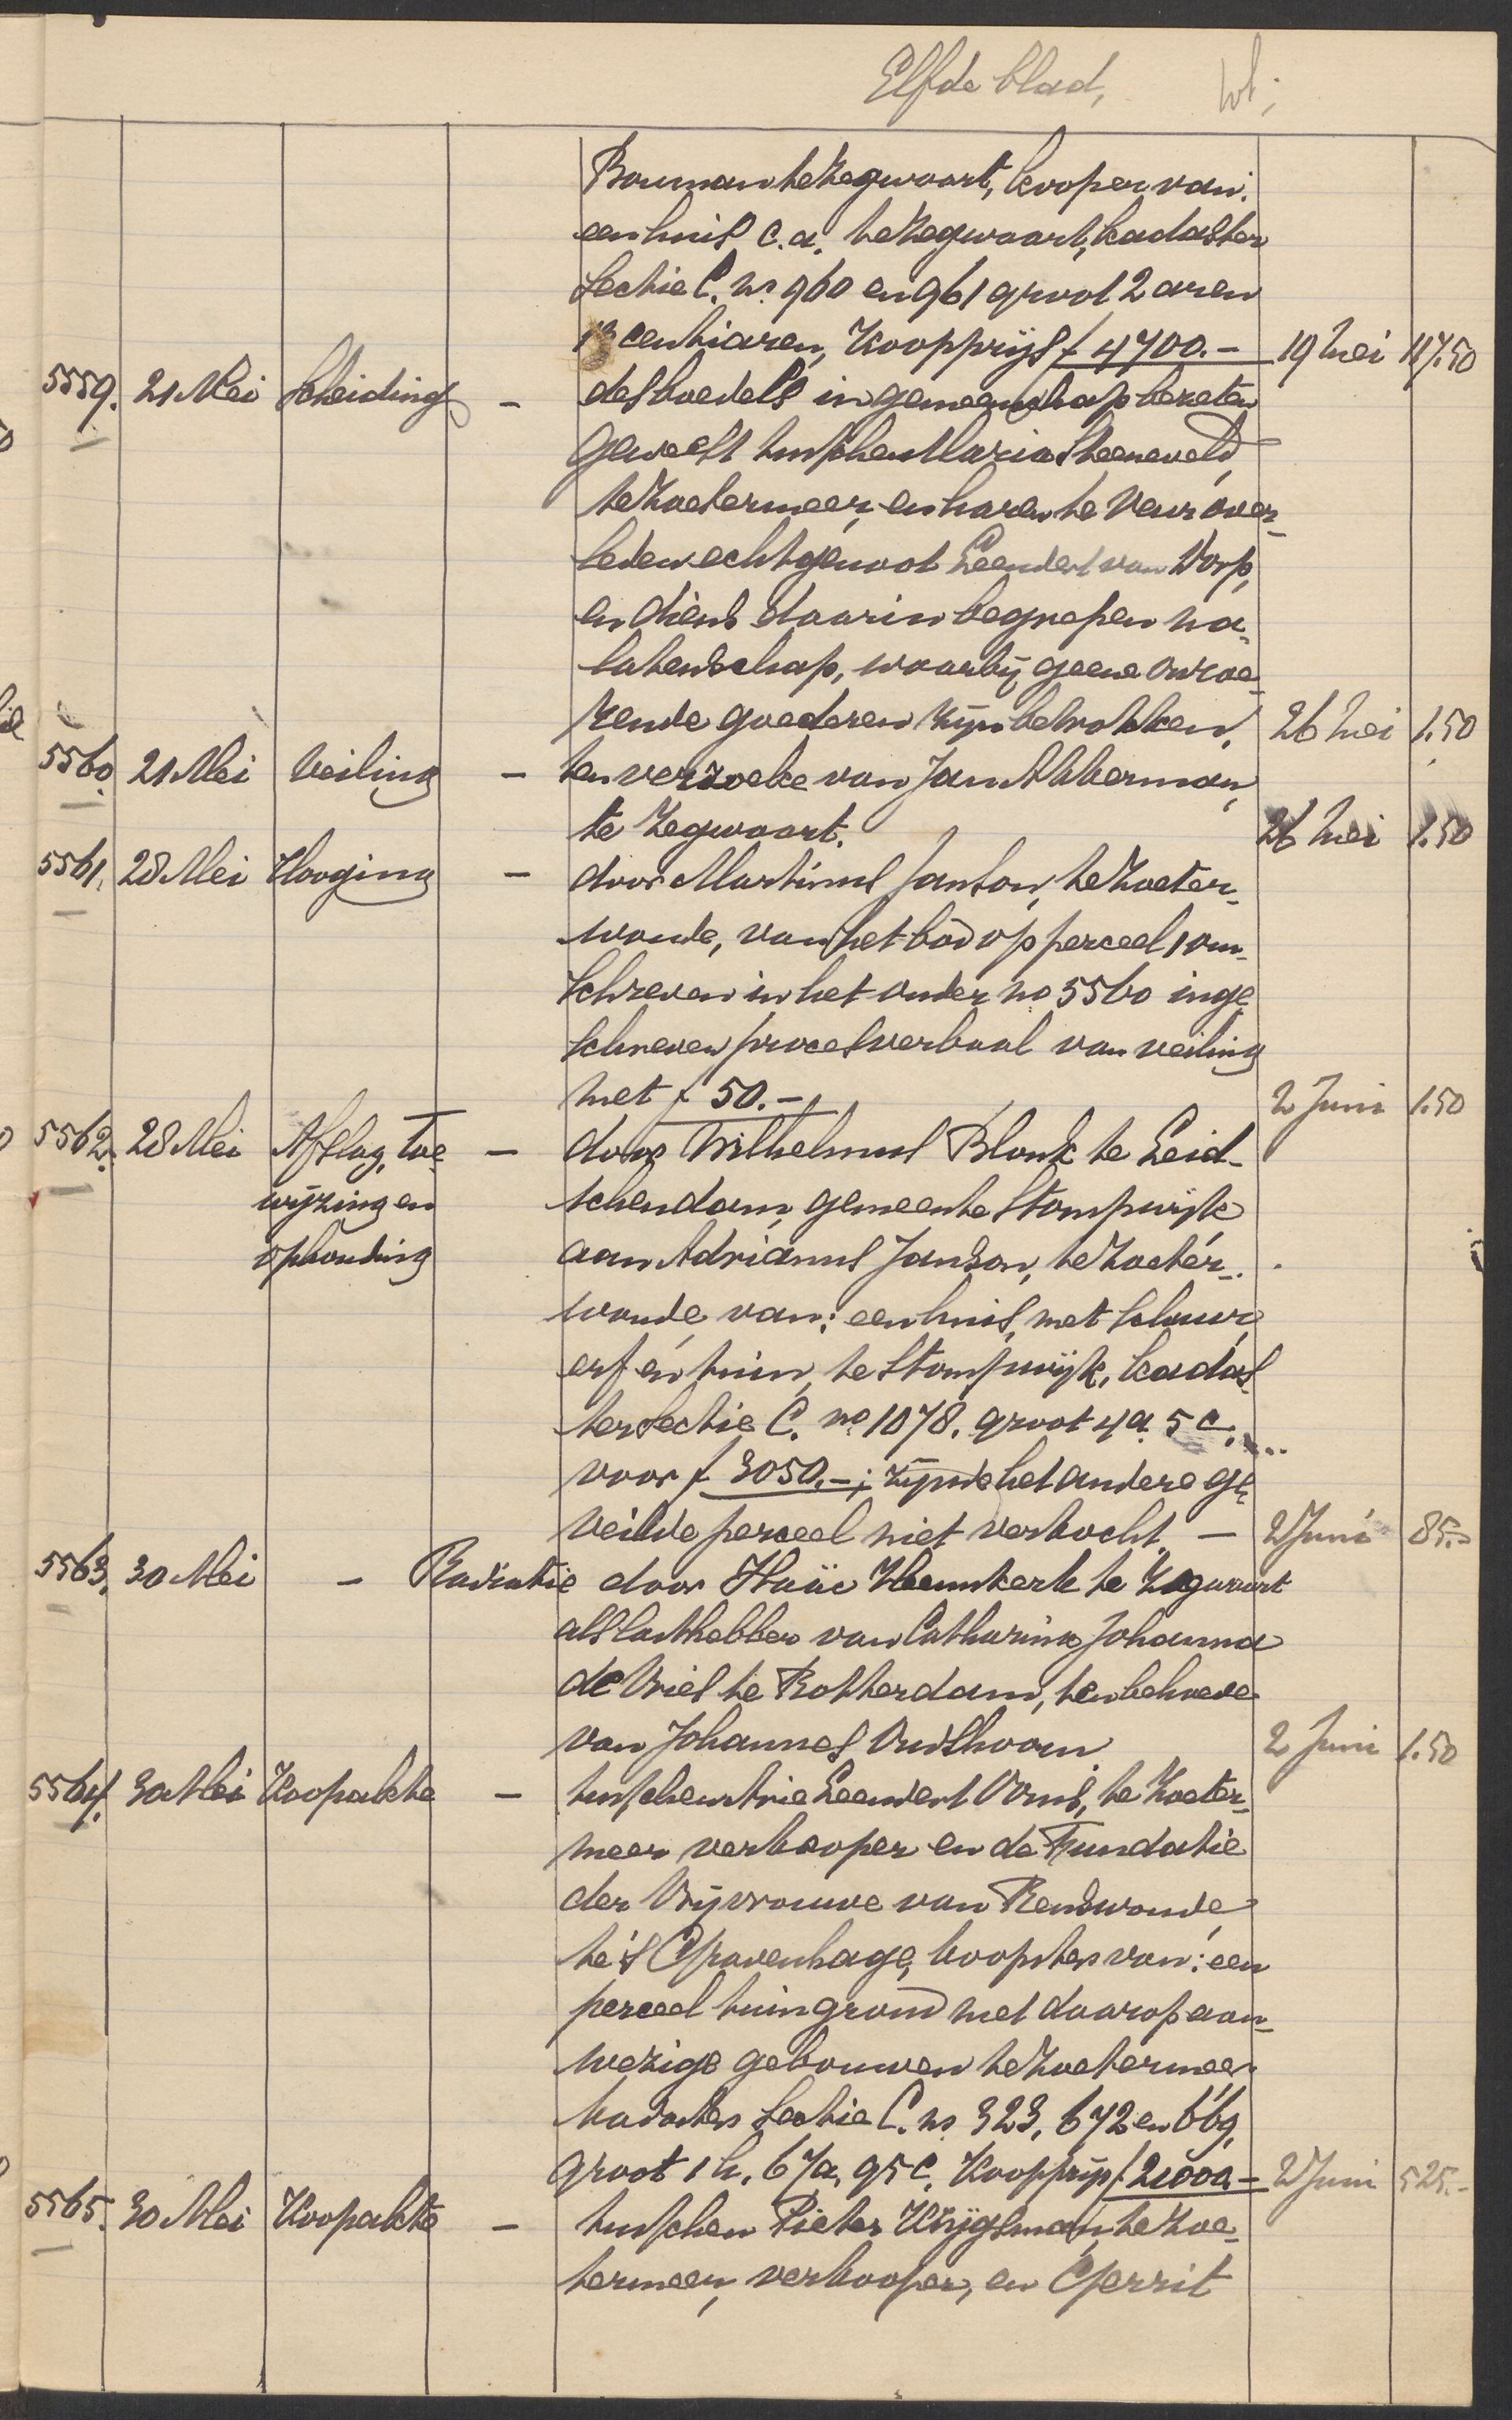 Elfde blad,
Bouman te Zegwaart, kooper van:
een huis c.a. te Zegwaart, kadaster
Sectie C. no 960 en 961 groot 2 aren
13 centiaren, Koopprijs f 4700.- 19 Mei 117.50
5559. 21 Mei Scheiding - des boedels in gemeenschap bezeten
geweest tusschen Maria Steeneveld
te Zoetermeer, en haren te Veur over-
leden echtgenoot Leendert van Dorp,
en diens daarin begrepen na-
latenschap, waarbij geene onroe-
rende goederen zijn betrokken. 26 Mei 1.50
5560. 21 Mei Veiling - ten verzoeke van Jan Akkerman,
te Zegwaart. 26 Mei 1.50
5561. 28 Mei Hooging - door Martinus Janson, te Zoeter-
woude, van het bod op perceel 1 om-
schreven in het onder no 5560 inge-
schreven procesverbaal van veiling
met f 50.- 2 Juni 1.50
5562. 28 Mei Afslag, toe- - door Wilhelmus Blonk te Leid-
wijzing en schendam, gemeente Stompwijk
ophouding aan Adrianus Janson, te Zoeter-
woude, van: een huis, met schuur,
erf en tuin, te Stompwijk, kadas-
ter Sectie C. no 1078. groot 4 a. 5 c.
voor f 3050.-; zijnde het andere ge-
veilde perceel niet verkocht. - 2 Juni 85.-
5563. 30 Mei - Radiatie door Isaäc Heemskerk te Zegwaart
als lasthebber van Catharina Johanna
de Vries te Rotterdam, ten behoeve
van Johannes Oudshoorn 2 Juni 1.50
5564. 30 Mei Koopakte - tusschen Arie Leendert Vons, te Zoeter-
meer verkooper en de Fundatie
der Vrijvrouwe van Renswoude
te 's Gravenhage, koopster van: een
perceel tuingrond met daarop aan-
wezige gebouwen te Zoetermeer
kadaster Sectie C. no 323, 672 en 669,
groot 1 h. 67 a. 95 c. Koopprijs f 21000.- 2 Juni 525.-
5565. 30 Mei Koopakte - tusschen Pieter Krijgsman, te Zoe-
termeer, verkooper, en Gerrit